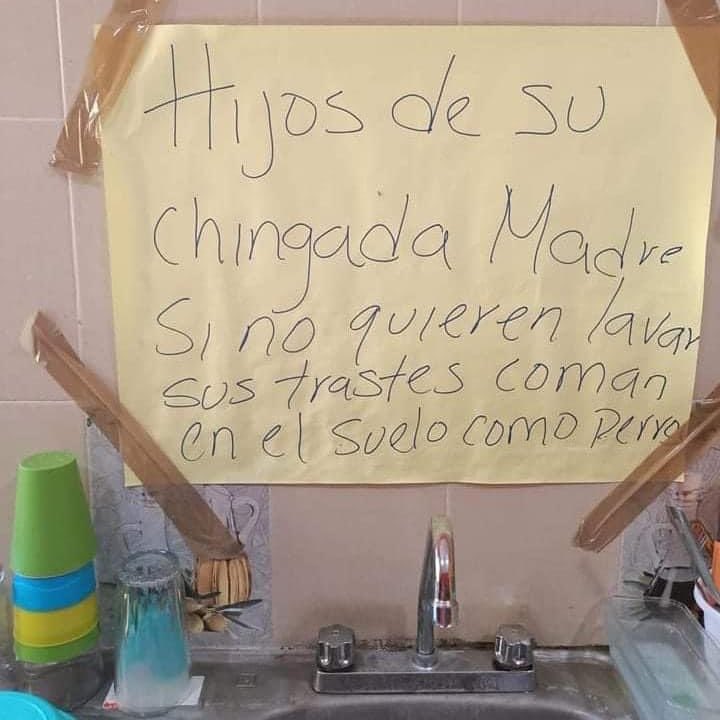 Hijos de su
chingada Madre
Si no quieren lavar
sus trastes coman
en el suelo como perro